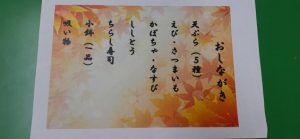 おしながき
天ぷら（５種）
えび・さつまいも
かぼちゃ・なすび
ししとう
ちらし寿司
小鉢（一品）
吸い物